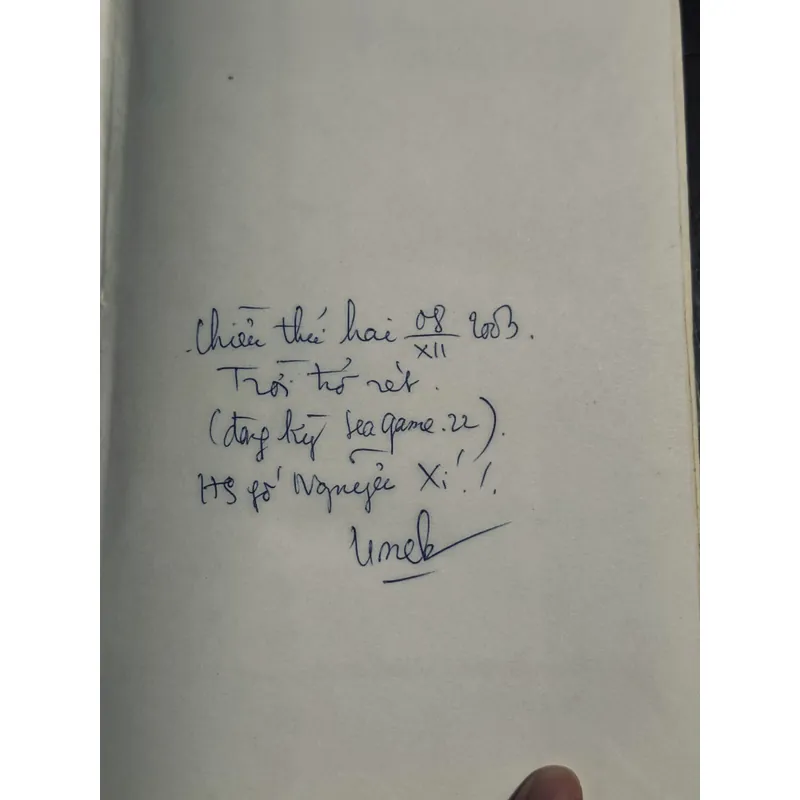 Chiều thứ hai 08/XII 2003.
Trời trở rét.
(đang kỳ Sea game.22).
HS phố Nguyễn Xí./.